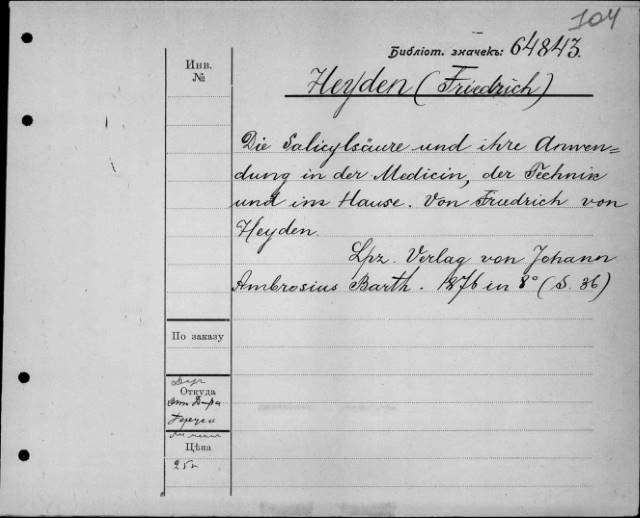 104
Библіот. значекъ: 64843.
Инв.
№
Heyden (Friedrich)
Die Salicylsäure und ihre Anwen=
dung in der Medicin, der Technik
und im Hause. Von Friedrich von
Heyden.
Lpz. Verlag von Johann
Ambrosius Barth. 1876 in 8° (S. 36)
По заказу
Откуда
Цѣна